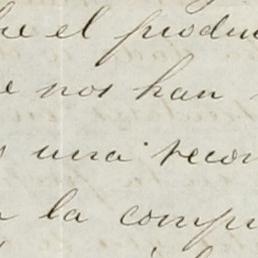 el produ
nos han
una recon
la compr